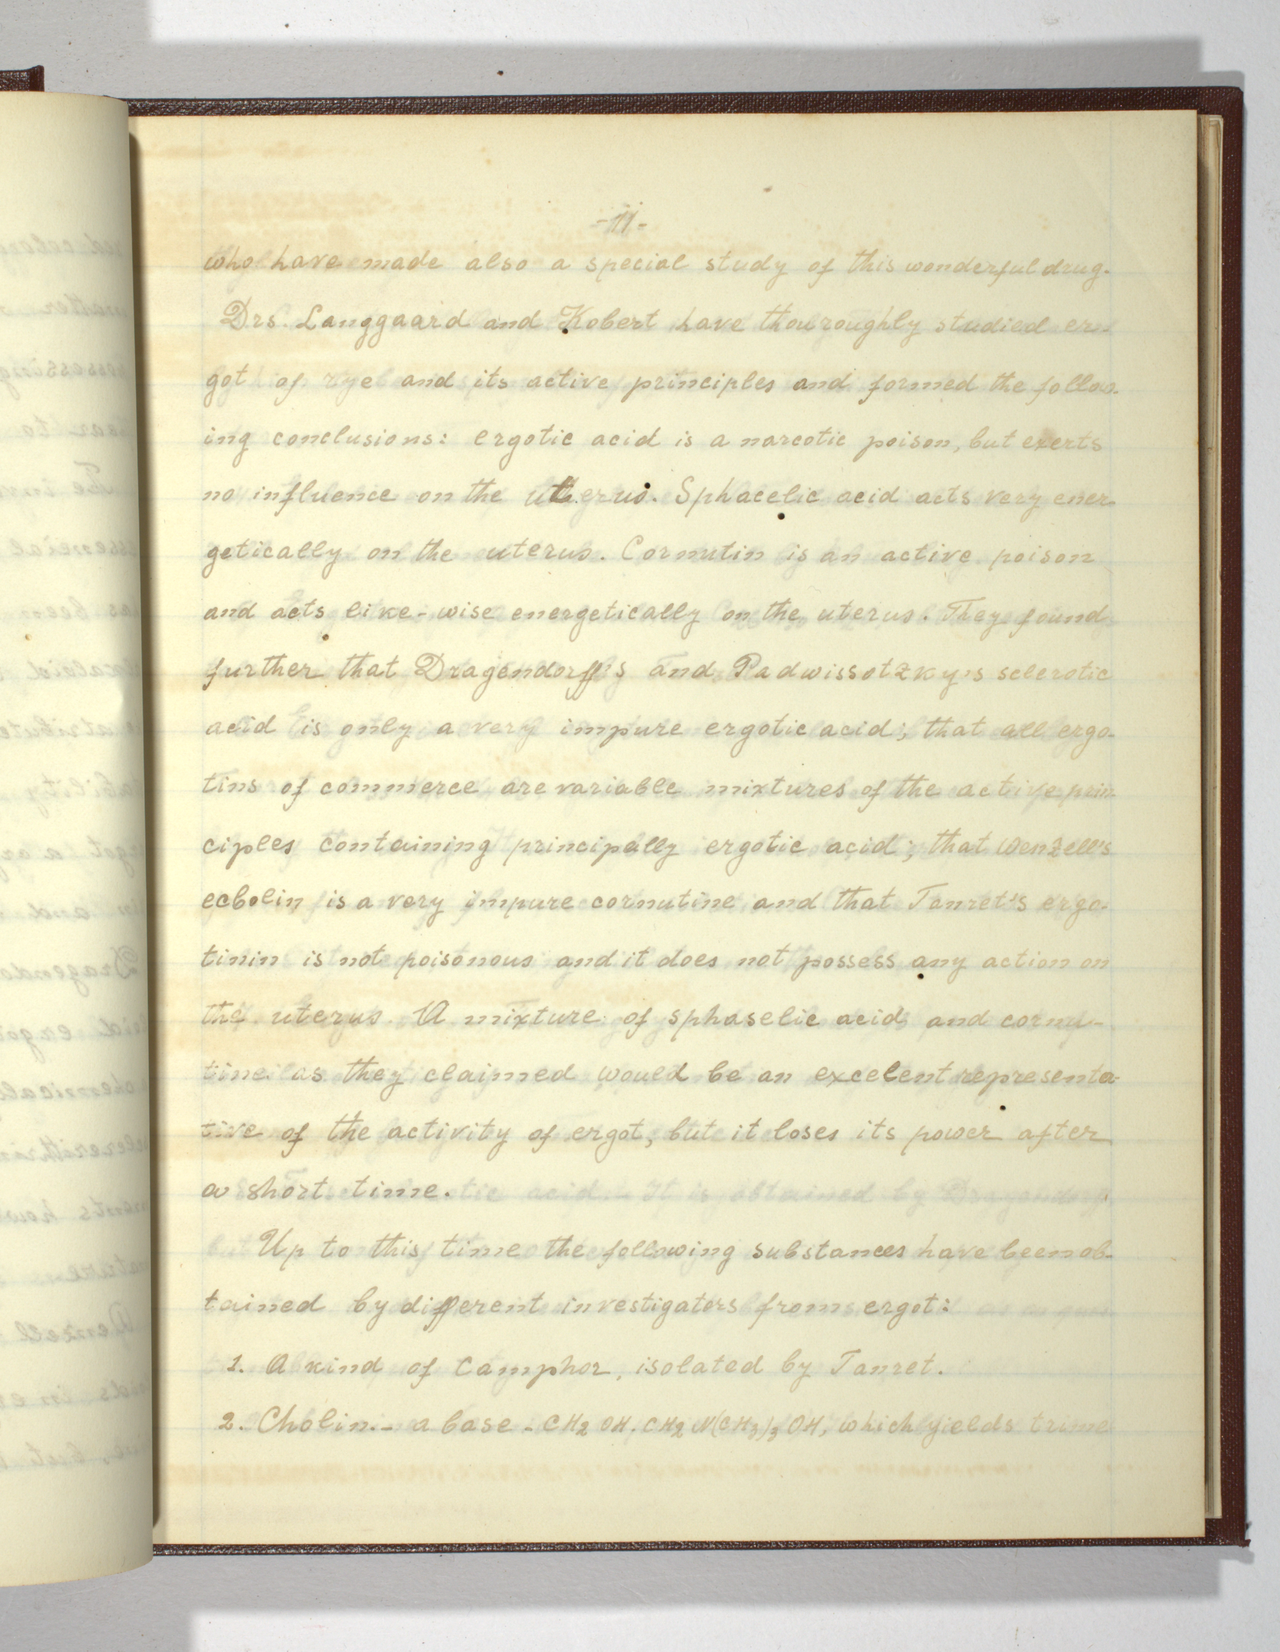 -11-
who have made also a special study of this wonderful drug.
Drs. Langgaard and Kobert have thouroughly studied er-
got of rye and its active principles and formed the follow-
ing conclusions: ergotic acid is a narcotic poison, but exerts
no influence on the utherus. Sphacelic acid acts very ener-
getically on the uterus. Cornutin is an active poison
and acts like-wise energetically on the uterus. They found
further that Dragendorff's and Padwissotzky's sclerotic
acid is only a very impure ergotic acid; that all ergo-
tins of commerce are variable mixtures of the active prin-
ciples containing principally ergotic acid; that Wenzell's
ecbolin is a very impure cornutine and that Tanret's ergo-
tinin is not poisonous and it does not possess any action on
the uterus. A mixture of sphaselic acid and cornu-
tine as they claimed would be an excelent representa-
tive of the activity of ergot, but it loses its power after
a short time.
Up to this time the following substances have been ob-
tained by different investigators from ergot:
1. A kind of Camphor, isolated by Tanret.
2. Cholin.- a base - CH2 OH. CH2 N(CH3)3 OH, which yields trime